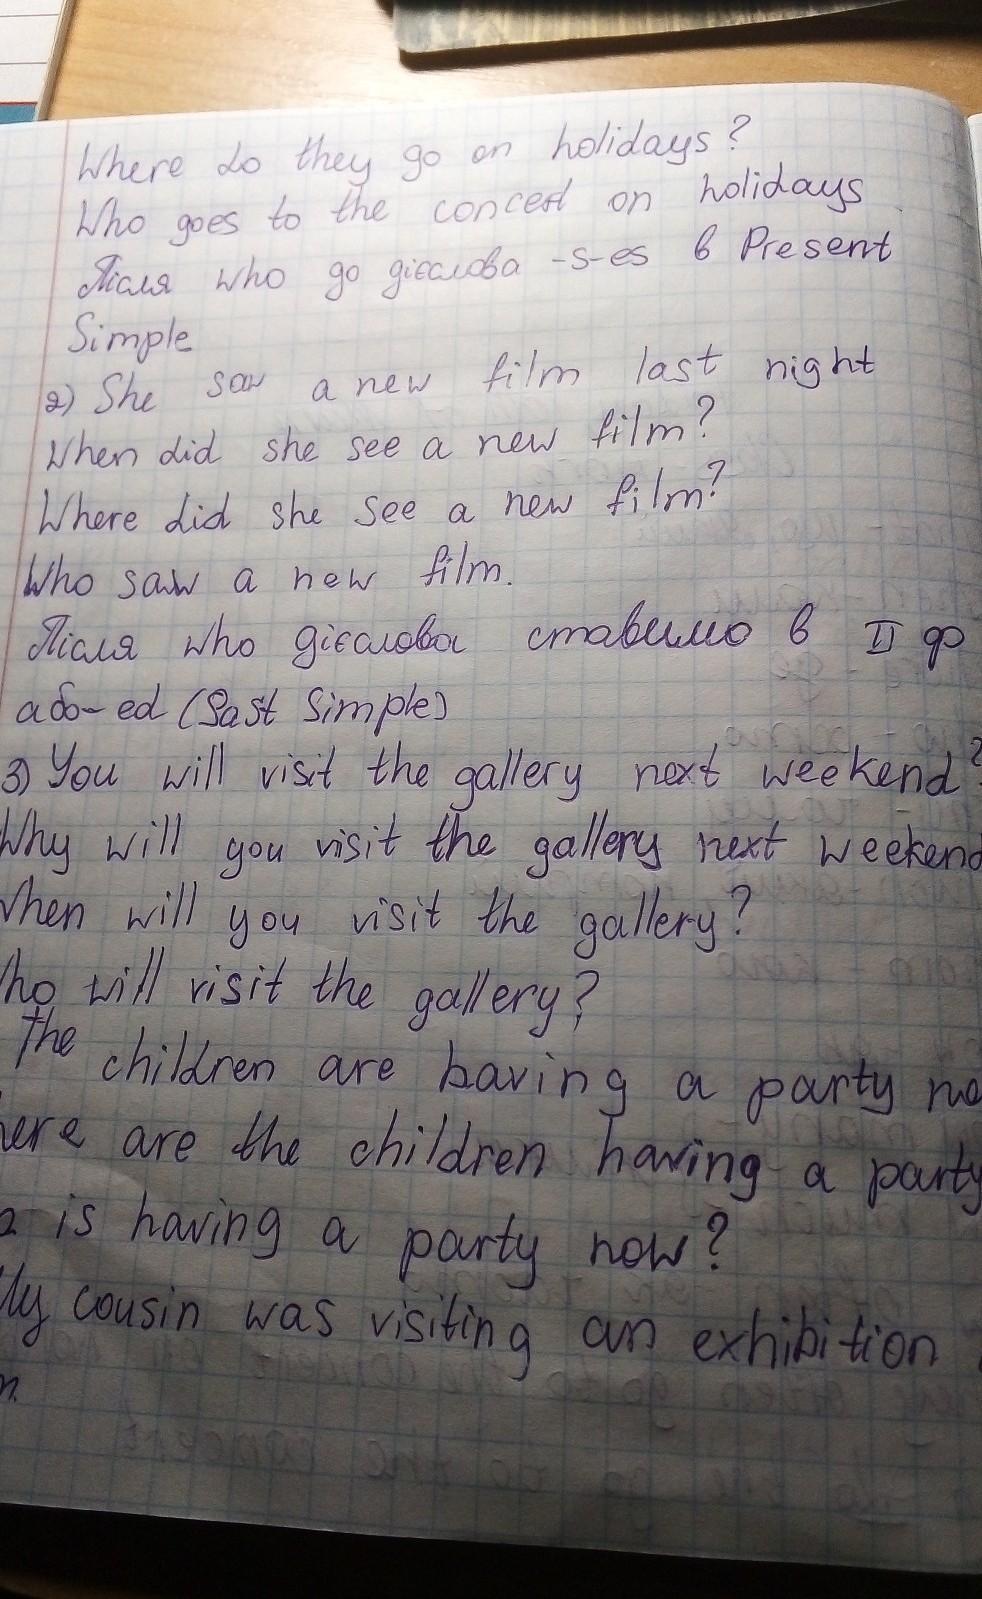 Where do they go on holidays?
Who goes to the concert on holidays
Після who до дієслова -s-es в Present
Simple
2) She saw a new film last night
When did she see a new film?
Where did she see a new film?
Who saw a new film.
Після who дієслова ставимо в II ф
або-ed (Past Simple)
3) You will visit the gallery next weekend?
Why will you visit the gallery next weekend
When will you visit the gallery?
Who will visit the gallery?
The children are having a party
are the children having a party
is having a party now?
My cousin was visiting an exhibition